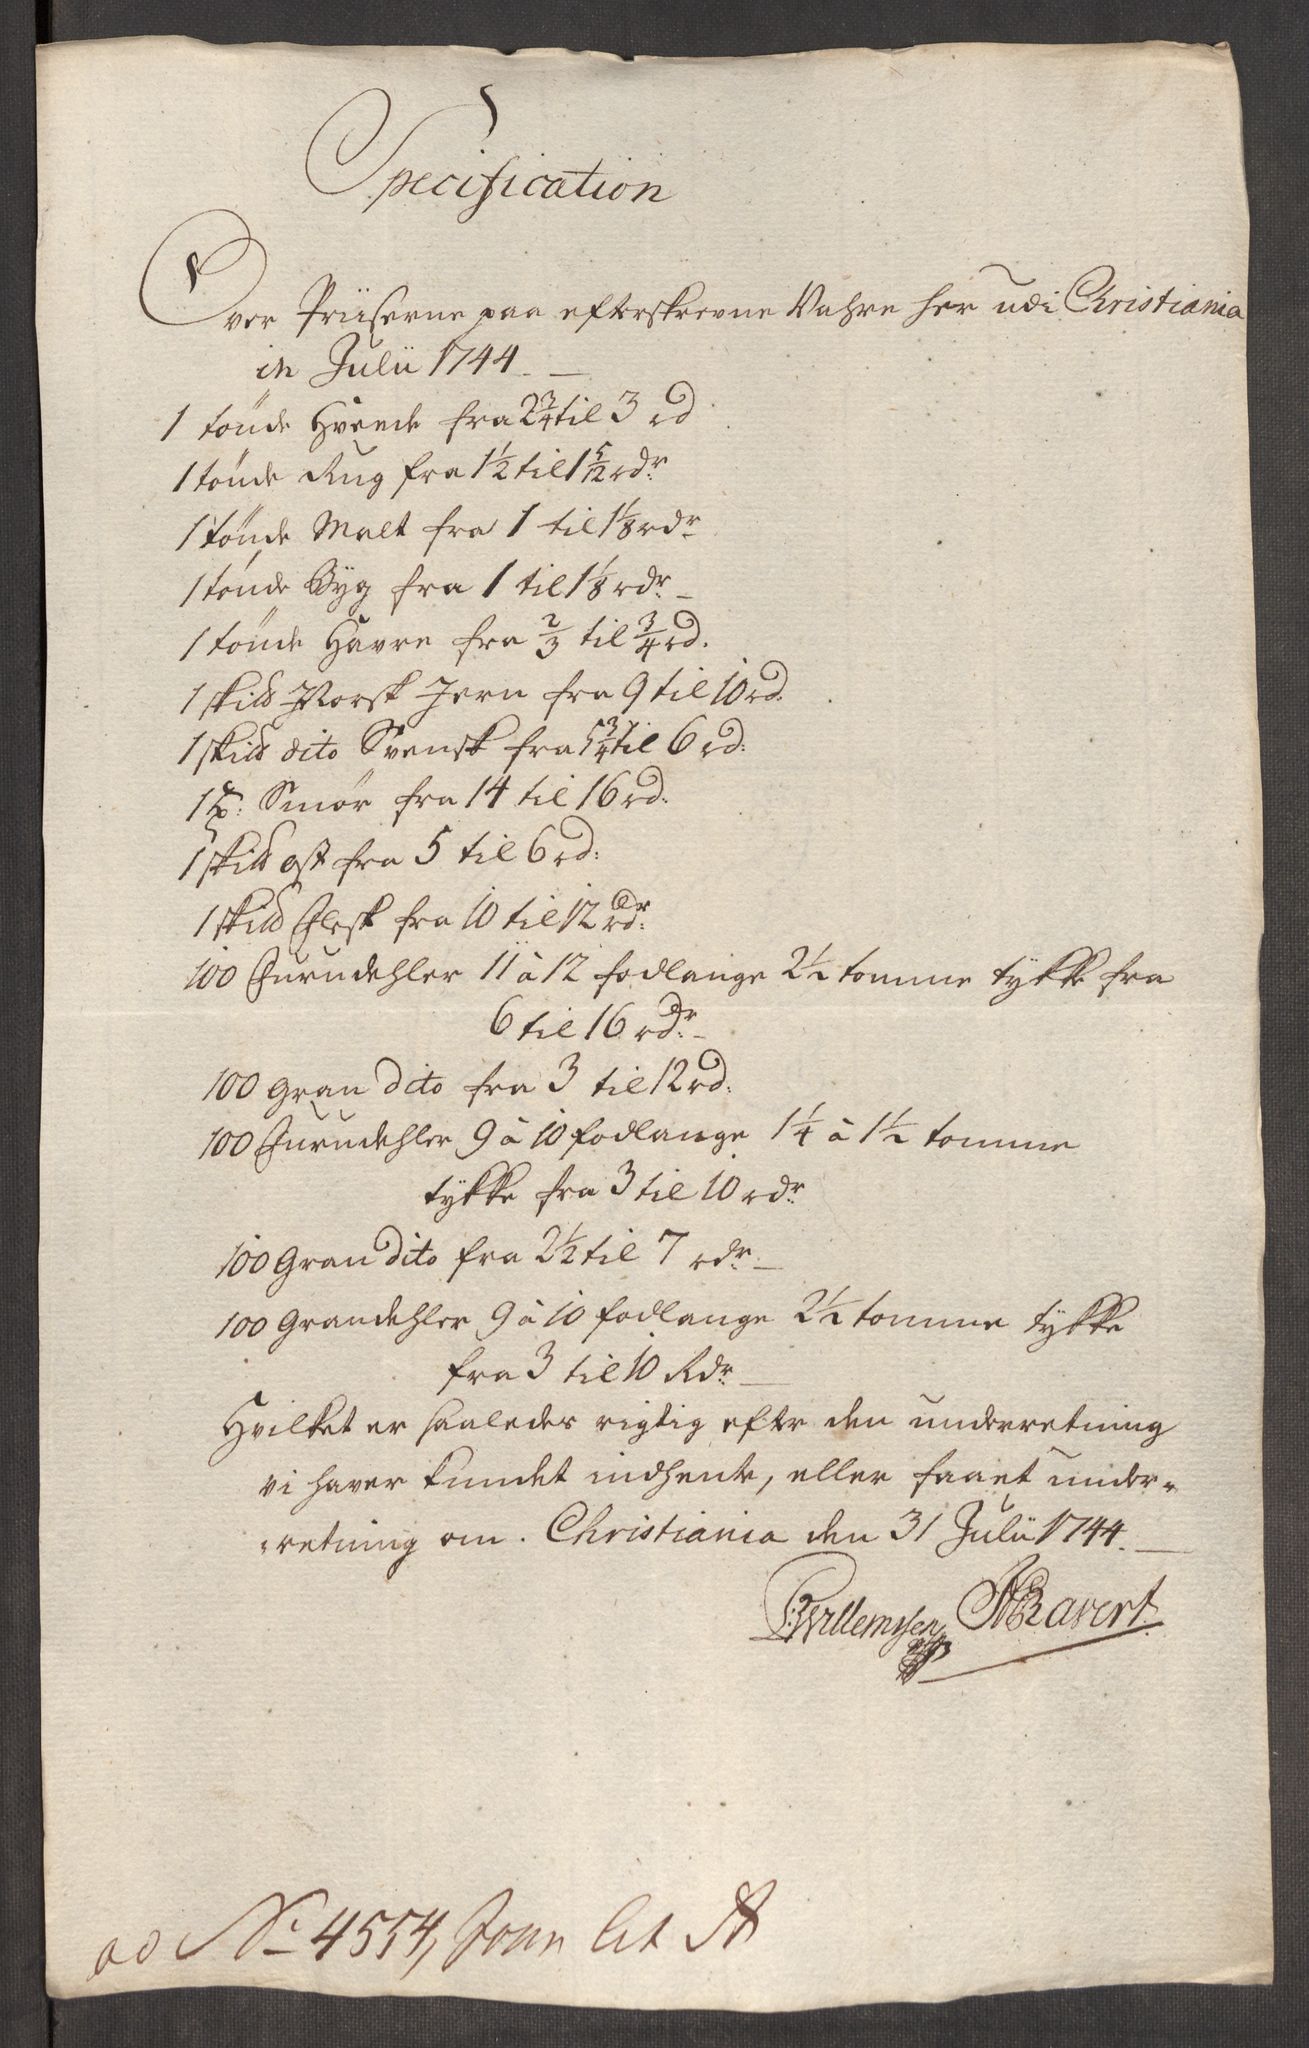 Specification
Over Priiserne paa efterskrevne Vahre her udi Christiania
in Julii 1744
1 tönde Hvede fra 2 3/4 til 3 rd
1 tönde Rug fra 1 1/2 til 1 5/12 rdr
1 tönde Malt fra 1 til 1 1/8 rdr
1 tönde Byg fra 1 til 1 1/8 rdr
1 tönde Havre fra 2/3 til 3/4 rd.
1 skild Norsk Jern fra 9 til 10 rd.
1 skild dito Svensk fra 5 3/4 til 6 rd:
1 Smör fra 14 til 16 rd:
1 skild ost fra 5 til 6 rd:
1 skild Flesk fra 10 til 12 rdr:
100 Furudehler 11 à 12 fodlange 2 1/2 tomme tykke fra
6 til 16 rdr
100 gran dito fra 3 til 12 rd:
100 Furudehler 9 à 10 fodlange 1 1/4 à 1 1/2 tomme
tykke fra 3 til 10 rdr
100 Gran dito fra 2 1/2 til 7 rdr
100 Grandehler 9 à 10 fodlange 2 1/2 tomme tykke
fra 3 til 10 Rdr
Hvilket er saaledes rigtig efter den underretning
vi haver kundet indhente, eller faaet under-
retning om. Christiania den 31 Julii 1744.
Willemsen Ravert
ad No 4554, Lit A